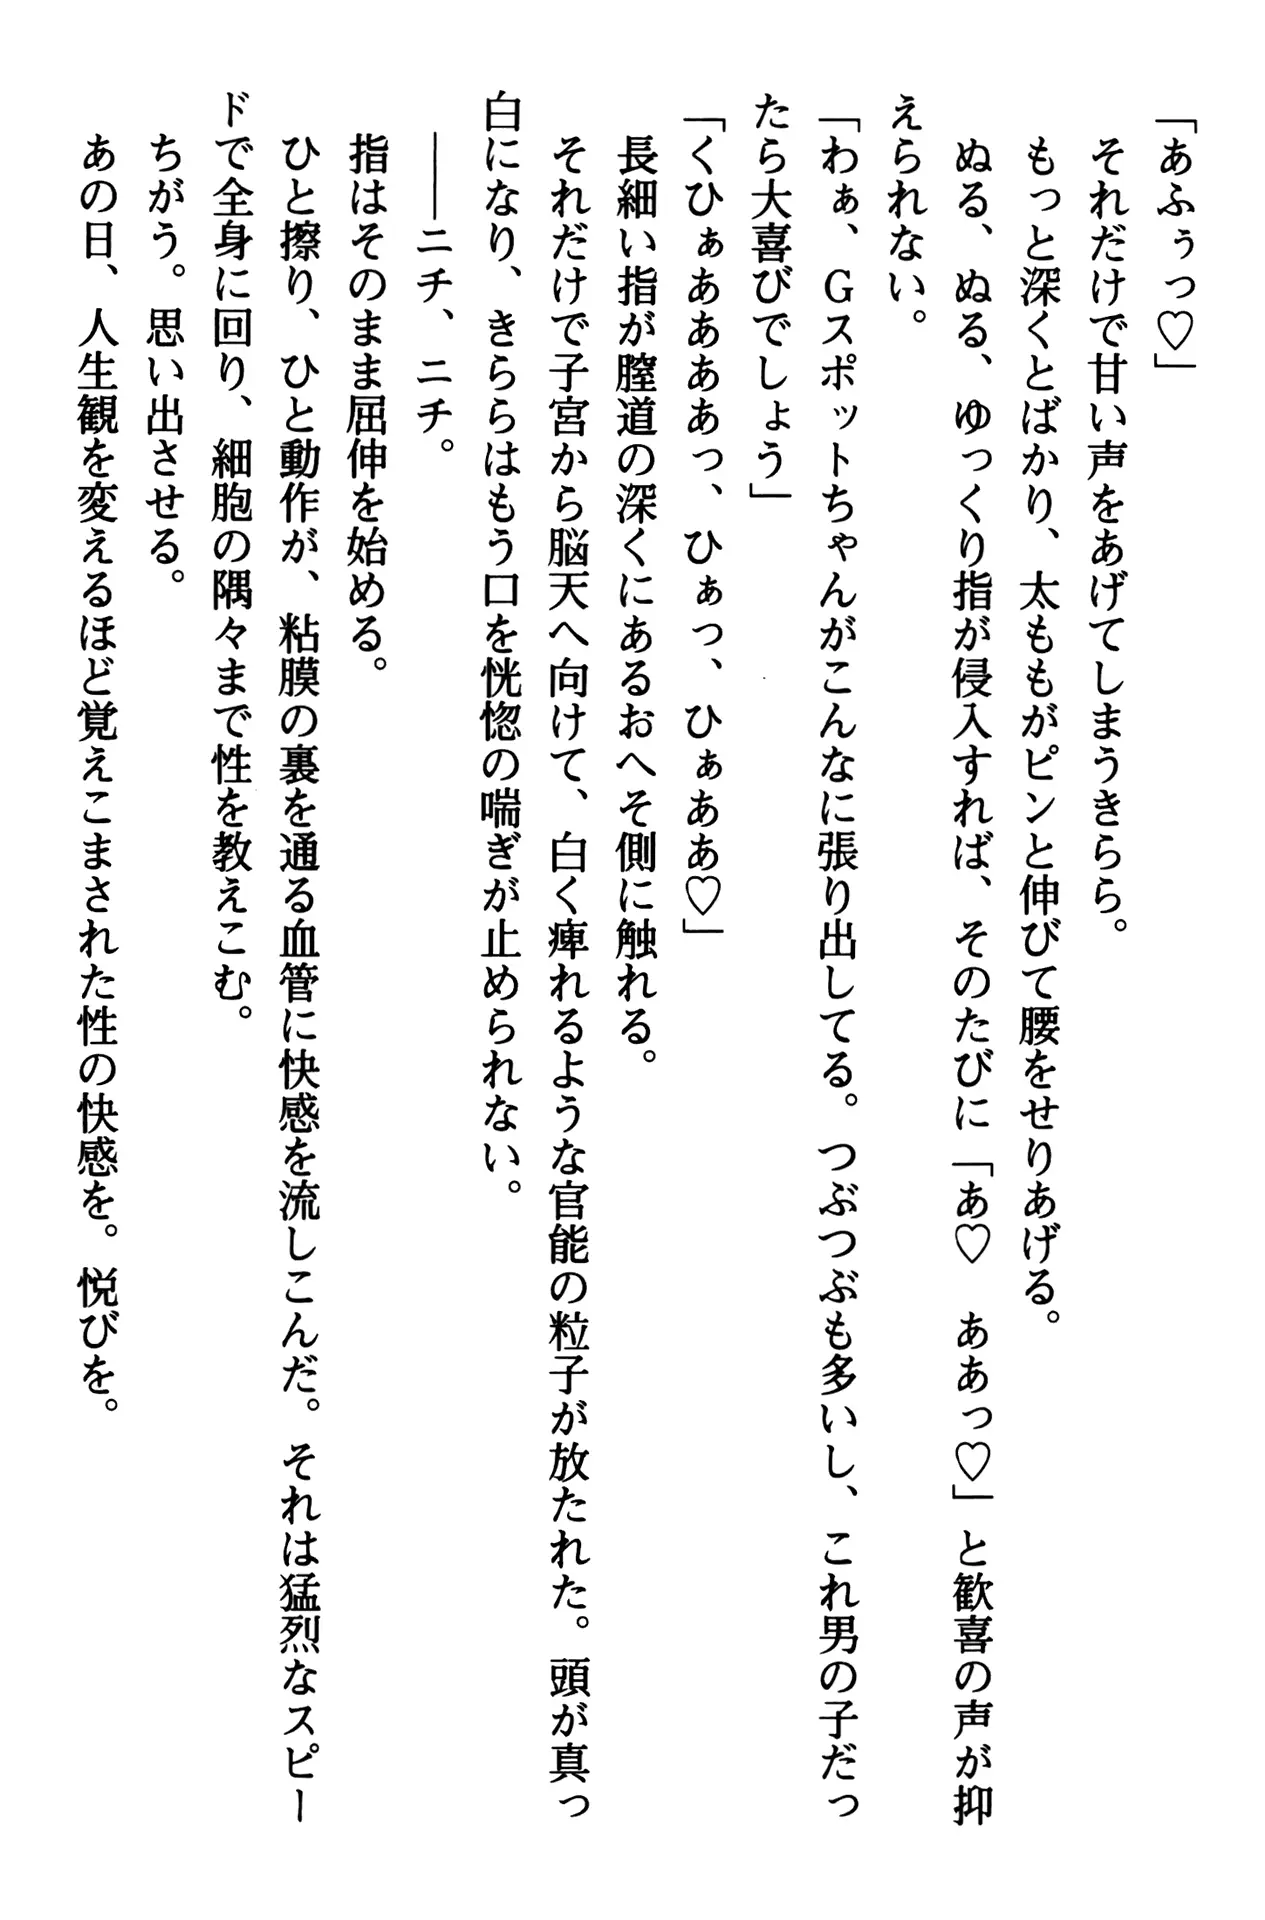 「あふぅっ♡」
　それだけで甘い声をあげてしまうきらら。
　もっと深くとばかり、太ももがピンと伸びて腰をせりあげる。
　ぬる、ぬる、ゆっくり指が侵入すれば、そのたびに「あ♡　ああっ♡」と歓喜の声が抑
えられない。
「わぁ、Ｇスポットちゃんがこんなに張り出してる。つぶつぶも多いし、これ男の子だっ
たら大喜びでしょう」
「くひぁああああっ、ひぁっ、ひぁああ♡」
　長細い指が膣道の深くにあるおへそ側に触れる。
　それだけで子宮から脳天へ向けて、白く痺れるような官能の粒子が放たれた。頭が真っ
白になり、きららはもう口を恍惚の喘ぎが止められない。
　――ニチ、ニチ。
　指はそのまま屈伸を始める。
　ひと擦り、ひと動作が、粘膜の裏を通る血管に快感を流しこんだ。それは猛烈なスピー
ドで全身に回り、細胞の隅々まで性を教えこむ。
　ちがう。思い出させる。
　あの日、人生観を変えるほど覚えこまされた性の快感を。悦びを。